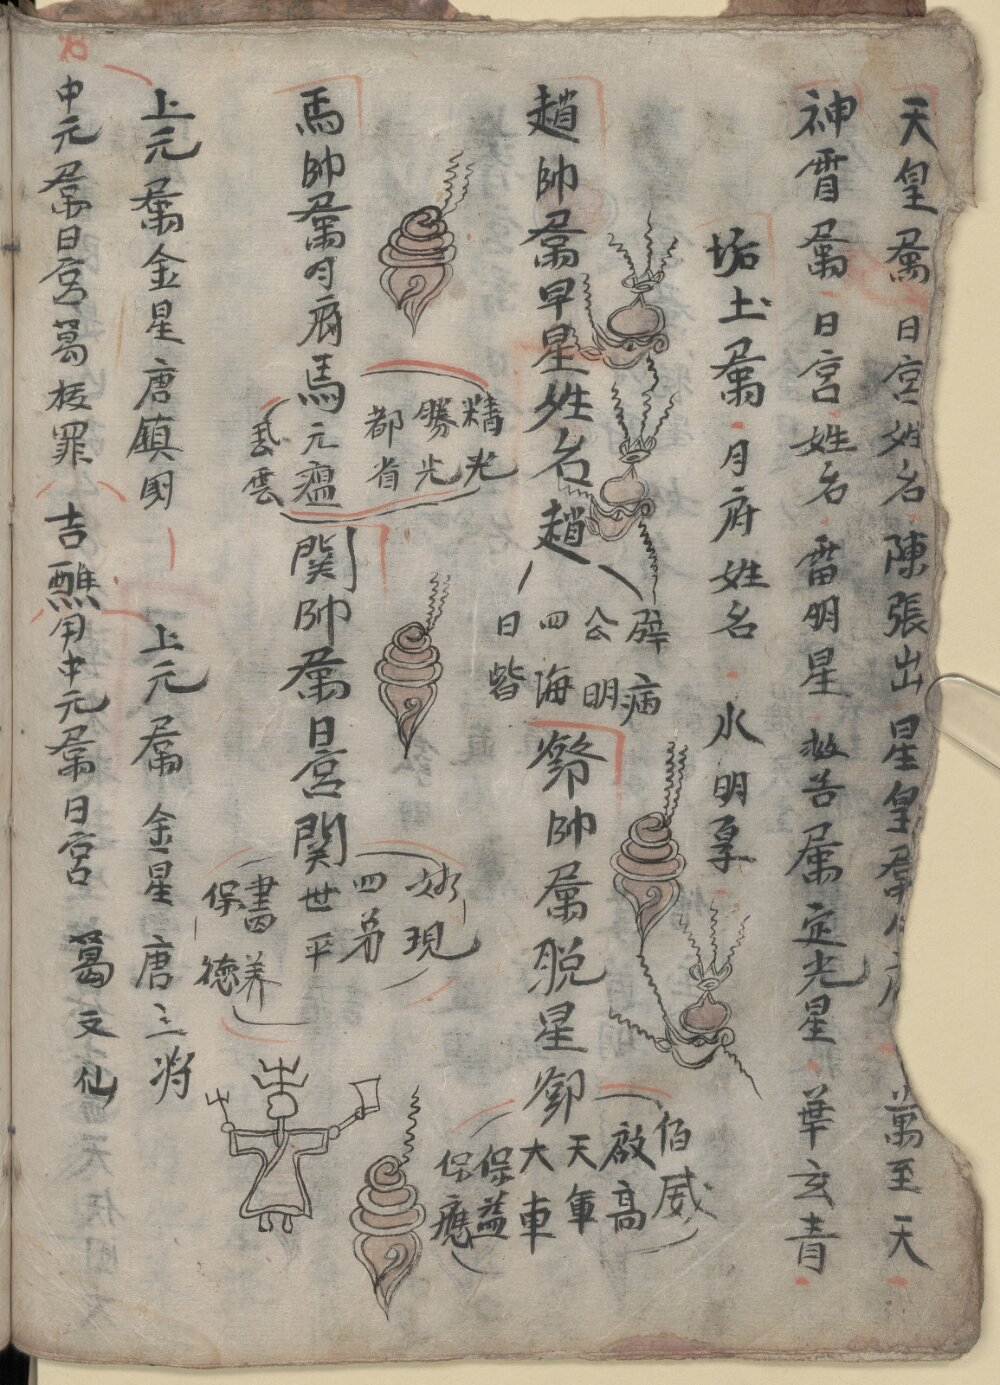 天皇屬日宮姓名陳張出星皇 萬至天
神霄屬日宮姓名雷明星救苦屬定光星華玄青
垢土屬月府姓名水明
趙帥屬早星姓名趙
辟病
公明
四海
日
鄧帥屬脫星鄧
伯威
啟高
天軍
大車
保益
保應
馬帥屬月府馬元
精光
勝光
都省
雲
関帥屬日宮関世平
妙現
四弟
書养
保德
上元屬金星唐鎮明 上元屬金星唐三将
中元屬日宮葛枝罪 吉醮用中元屬日宮葛文仙